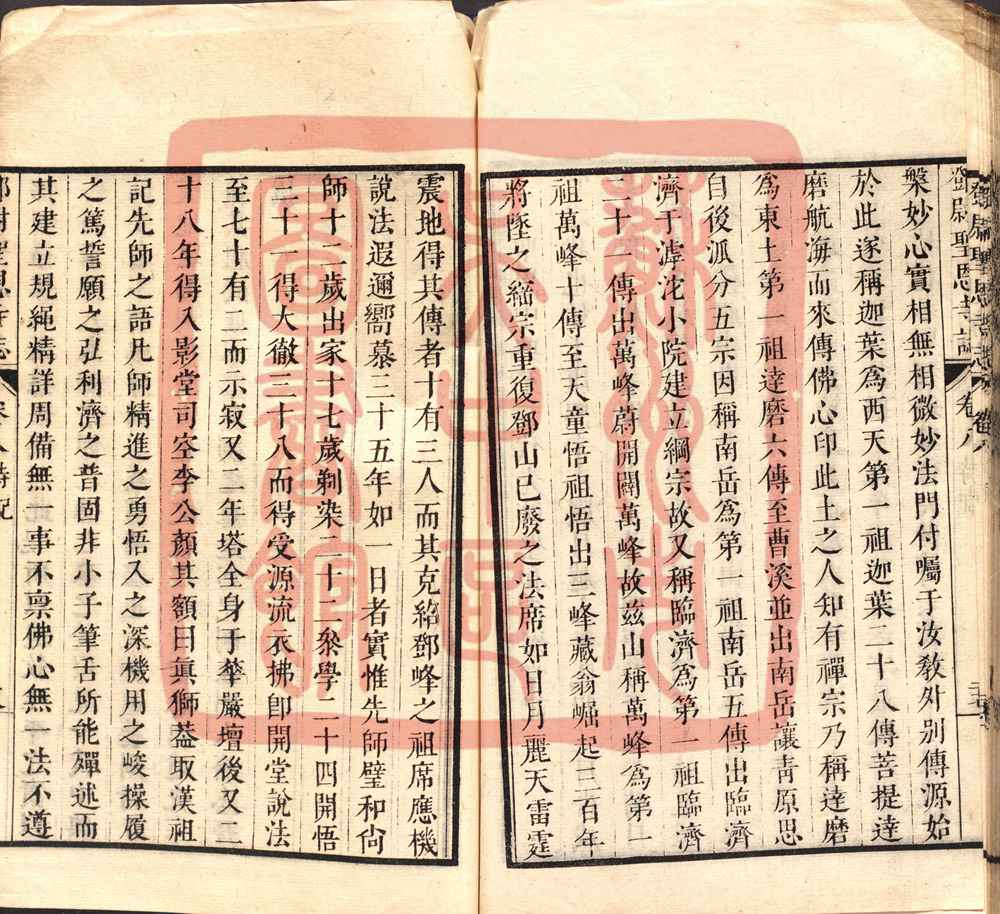 鄧尉聖恩寺誌 卷八
槃妙心實相無相微妙法門付囑于汝教外別傳源始
於此遂稱迦葉爲西天第一祖迦葉二十八傳菩提達
磨航海而來傳佛心印此土之人知有禪宗乃稱達磨
爲東土第一祖達磨六傳至曹溪並出南岳讓靑原思
自後派分五宗因稱南岳爲第一祖南岳五傳出臨濟
濟于滹沱小院建立綱宗故又稱臨濟爲第一祖臨濟
二十一傳出萬峰蔚開闢萬峰故茲山稱萬峰爲第一
祖萬峰十傳至天童悟祖悟出三峰藏翁崛起三百年
將墜之緇宗重復鄧山已廢之法席如日月麗天雷霆
震地得其傳者十有三人而其克紹鄧峰之祖席應機
說法遐邇嚮慕三十五年如一日者實惟先師璧和尙
師十二歲出家十七歲剃染二十二叅學二十四開悟
三十一得大徹三十八而得受源流衣拂卽開堂說法
至七十有二而示寂又二年塔全身于華嚴壇後又二
十八年得入影堂司空李公顏其額曰眞獅葢取漢祖
記先師之語凡師精進之勇悟入之深機用之峻操履
之篤誓願之弘利濟之普固非小子筆舌所能殫述而
其建立規繩精詳周備無一事不禀佛心無一法不遵